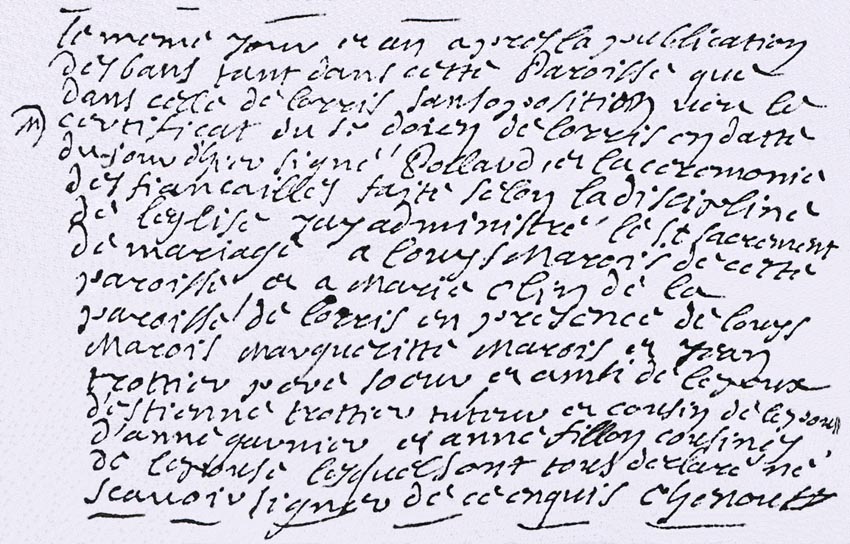 le meme jour et an apres la publication
des bans tant dans cette Paroisse que
dans celle de lorris sans oposition vieu le
M certificat du sr doien de lorris en datte
du jour d'hier signé Pollard et la ceremonie
des fiancailles faite selon la discipline
de leglise j'ay administré le st sacrement
de mariage a louys Marois de cette
paroisse et a Marie Clin de la
paroisse de lorris en presence de louys
Marois Margueritte Marois et jean
trottier pere soeur et ami de lepoux
d'estienne trottier tuteur et cousin de lepouse
d'anne garnier et anne fillon cousines
de lepouse lesquels ont tous declaré ne
scavoir signer de ce enquis Chenou